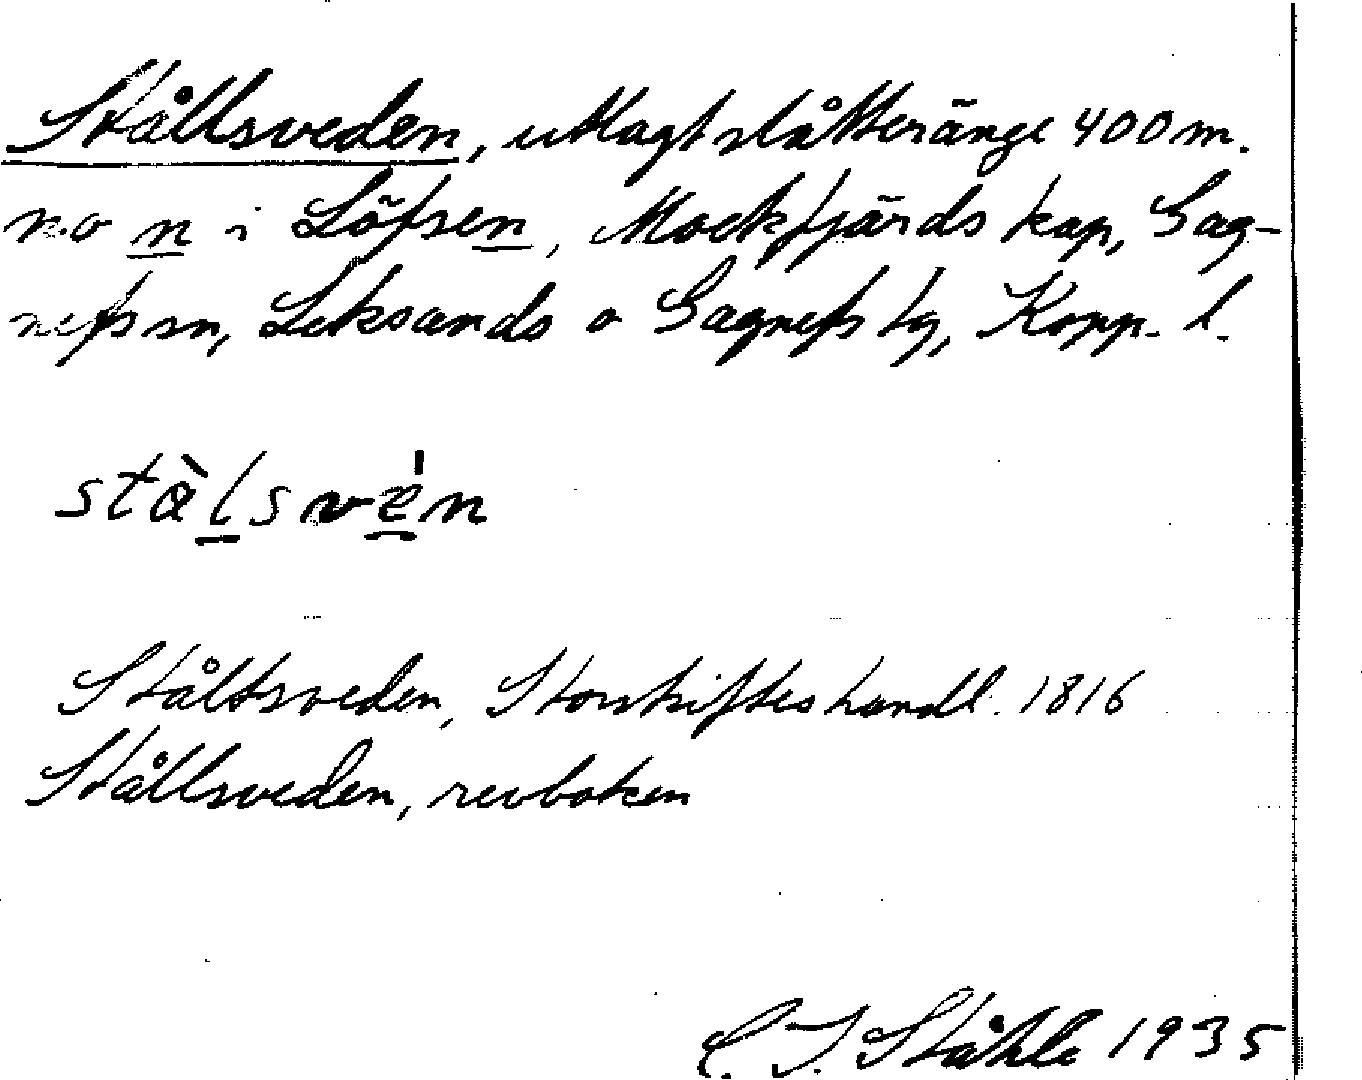 Stållsveden, utlagt slåtteränge 400 m.
no n i Löfsen, Mockfjärds kap, Gag-
nefs sn, Leksands o Gagnefs tg, Kopp. l.
stàlsvén
Ståltsveden, Storskifteshandl. 1816
Stållsveden, revboken
C. I. Ståhle 1935